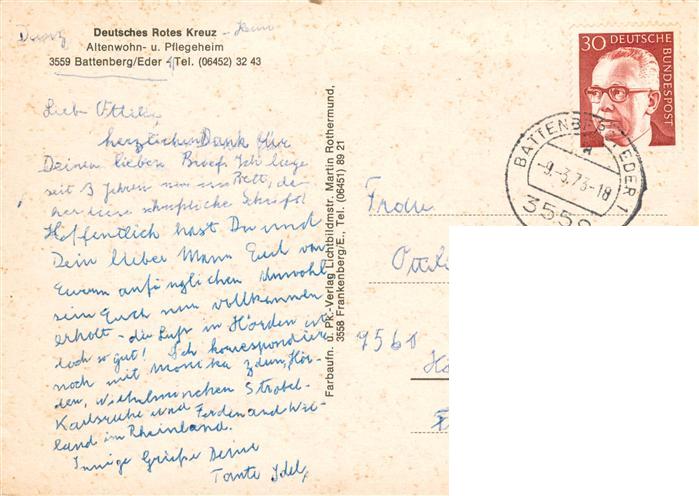 Deutsches Rotes Kreuz
Altenwohn- u. Pflegeheim
3559 Battenberg/Eder Tel. (06452) 32 43
Liebe Ottilie,
herzlichen Dank für
Deinen lieben Brief. Ich liege
seit 3 Jahren nun im Bett, da-
her diese scheußliche Schrift!
Hoffentlich hast Du und
Dein lieber Mann Euch von
Eurem anfänglichen Unwohl
sein Euch nun vollkommen
erholt - die Luft in Hörden ist
doch so gut! Ich korrespondiere
noch mit Monika Hör-
den, Strobel-
Karlsruhe und Ferdenand Wie-
land im Rheinland.
Innige Grüße Deine
Tante
Farbaufn. u. PK.-Verlag Lichtbildmstr. Martin Rothermund,
3558 Frankenberg/E., Tel. (06451) 89 21
30 DEUTSCHE BUNDESPOST
BATTENBERG, EDER 1
a
-9.-3.73-18
3559
Frau
Ottil
7561
Hö